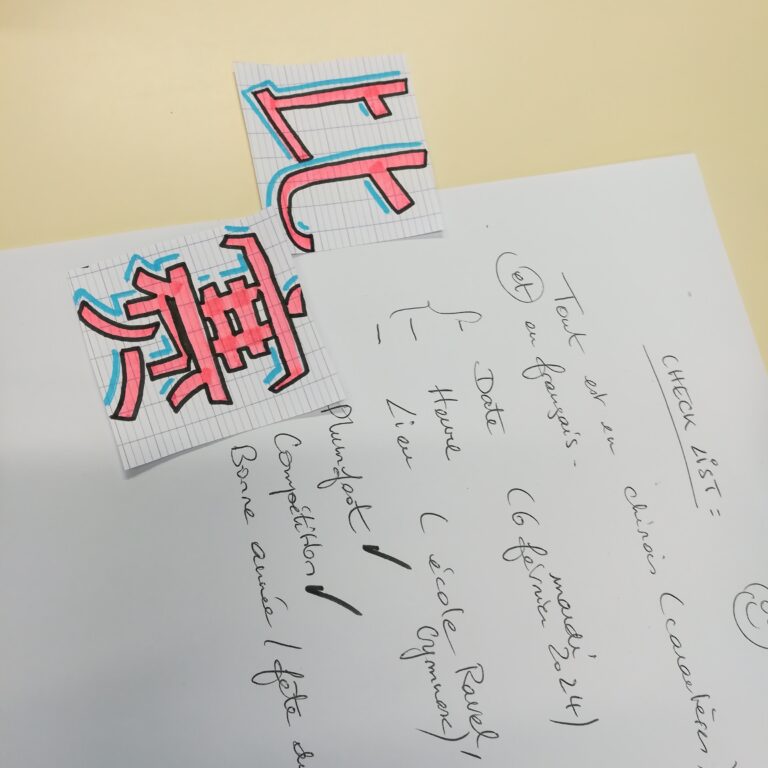 CHECK LIST :
Tout est en chinois (caractères)
et en français.
- Date (mardi
6 février 2024)
- Heure
- Lieu (école Ravel,
Gymnase)
Plumfoot ✓
Compétition ✓
Bonne année / fête du
比
赛